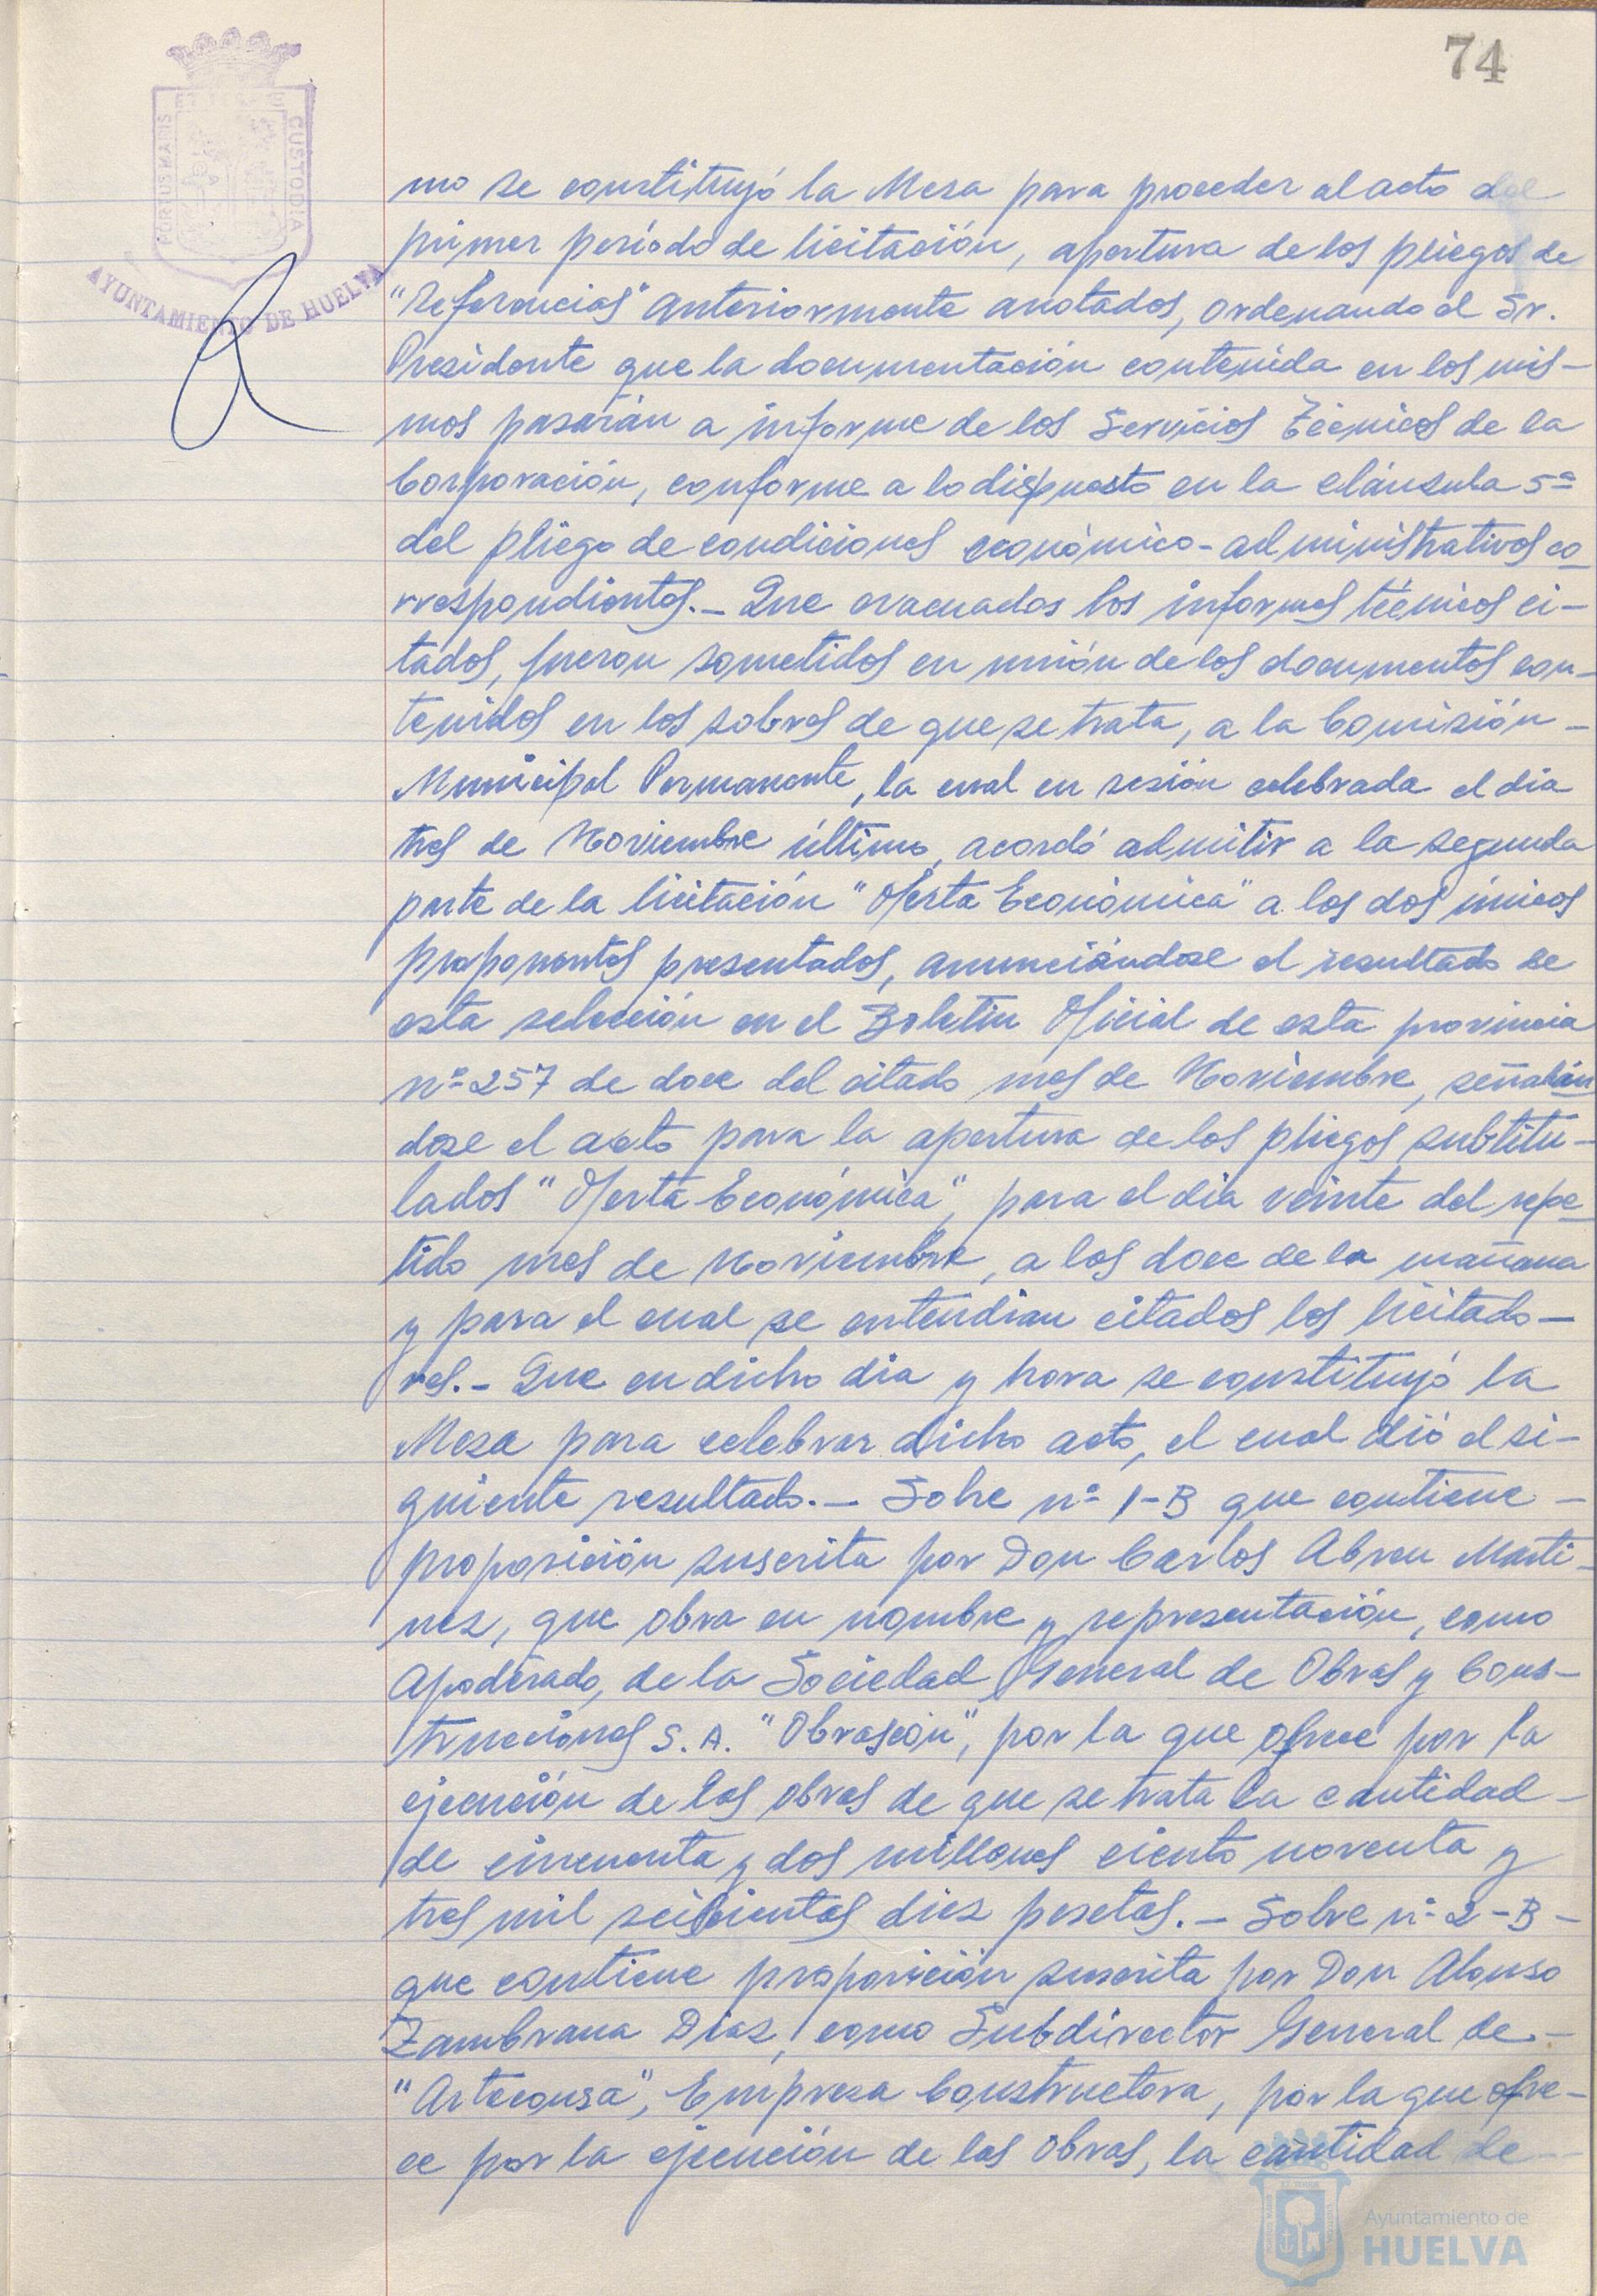 74
PORTUS MARIS
CUSTODIA
AYUNTAMIENTO DE HUELVA
mo se constituyó la Mesa para proceder al acto del
primer período de licitación, apertura de los pliegos de
"Referencias" anteriormente anotados, ordenando el Sr.
Presidente que la documentación contenida en los mis-
mos pasarán a informe de los Servicios Técnicos de la
Corporación, conforme a lo dispuesto en la cláusula 5ª
del pliego de condiciones económico-administrativos co-
rrespondientes.- Que evacuados los informes técnicos ci-
tados, fueron sometidos en unión de los documentos con-
tenidos en los sobres de que se trata, a la Comisión -
Municipal Permanente, la cual en sesión celebrada el dia
tres de Noviembre último, acordó admitir a la segunda
parte de la licitación "Oferta Económica" a los dos únicos
proponentes presentados, anunciándose el resultado de
esta selección en el Boletin Oficial de esta provincia
nº 257 de doce del citado mes de Noviembre, señalán
dose el acto para la apertura de los pliegos subtitu-
lados "Oferta Económica", para el dia veinte del repe-
tido mes de Noviembre, a las doce de la mañana
y para el cual se entendian citados los licitado-
res.- Que en dicho dia y hora se constituyó la
Mesa para celebrar dicho acto, el cual dió el si-
guiente resultado.- Sobre nº 1-B que contiene -
proposición suscrita por Don Carlos Abreu Marti-
nez, que obra en nombre y representación, como
Apoderado, de la Sociedad General de Obras y Cons-
trucciones S.A. "Obrascón", por la que ofrece por la
ejecución de las obras de que se trata la cantidad -
de cincuenta y dos millones ciento noventa y
tres mil seiscientas diez pesetas.- Sobre nº 2-B -
que contiene proposición suscrita por Don Alonso
Zambrana Diaz, como Subdirector General de -
"Arteconsa", Empresa Constructora, por la que ofre-
ce por la ejecución de las obras, la cantidad de -
Ayuntamiento de
HUELVA